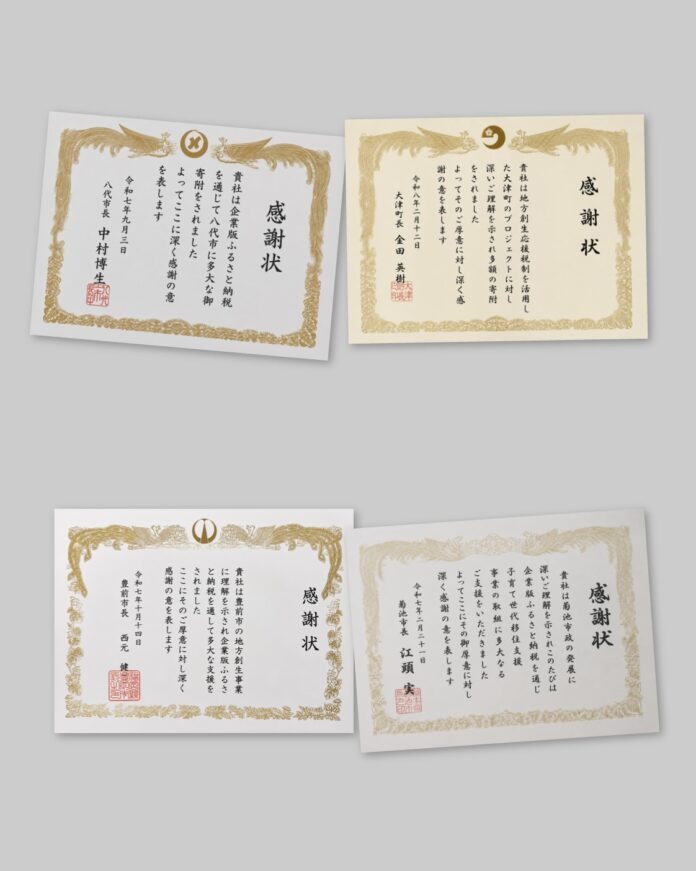 感謝状
貴社は企業版ふるさと納税
を通じて八代市に多大な御
寄附をされました
よってここに深く感謝の意
を表します
令和七年九月三日
八代市長 中村博生
感謝状
貴社は地方創生応援税制を活用し
た大津町のプロジェクトに対し
深いご理解を示され多額の寄附
をされました
よってそのご厚意に対し深く感
謝の意を表します
令和八年二月十二日
大津町長 金田英樹
感謝状
貴社は豊前市の地方創生事業
に理解を示され企業版ふるさ
と納税を通して多大な支援を
されました
ここにそのご厚意に対し深く
感謝の意を表します
令和七年十月十四日
豊前市長 西元健
感謝状
貴社は菊池市政の発展に
深いご理解を示されこのたびは
企業版ふるさと納税を通じ
子育て世代移住支援
事業の取組に多大なる
ご支援をいただきました
よってここにその御厚意に対し
深く感謝の意を表します
令和七年二月二十一日
菊池市長 江頭実